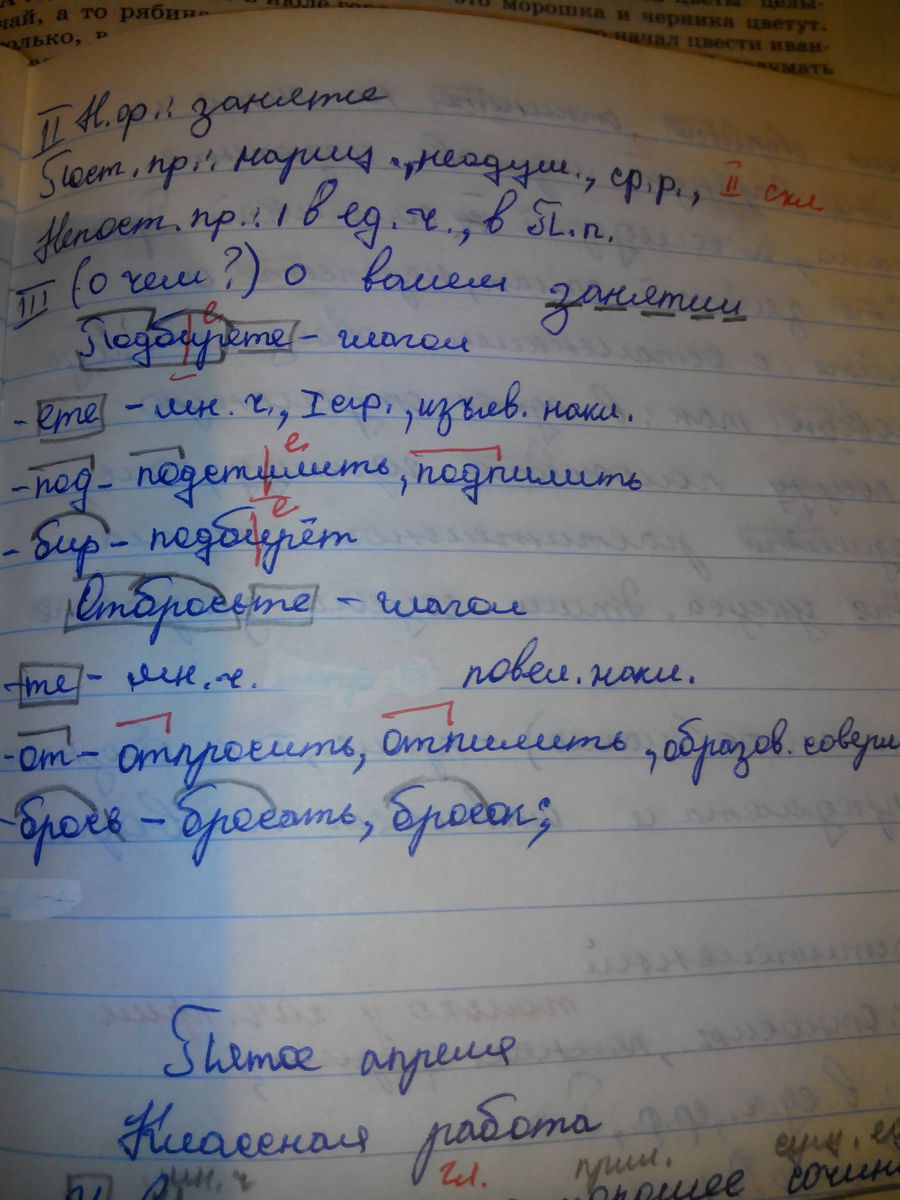 чай, а то рябина
морошка и черника цветут.
начал цвести иван-
думать
II Н.ф.: занятие
Пост. пр.: нариц., неодуш., ср.р., II скл
Непост. пр.: в ед. ч., в П.п.
III (о чем?) о вашем занятии
е
Подбирете - глагол
- ете - мн. ч., I спр., изъяв. накл.
е
- под - подстилить, подпилить
е
- бир - подбирёт
Отбросьте - глагол
- те - мн. ч. повел. накл.
- от - отпросить, отпилить, образов. соверш
- брось - бросать, бросок;
Пятое апреля
Классная работа
мн. ч гл. прил. сущ. ед
хорошее сочин